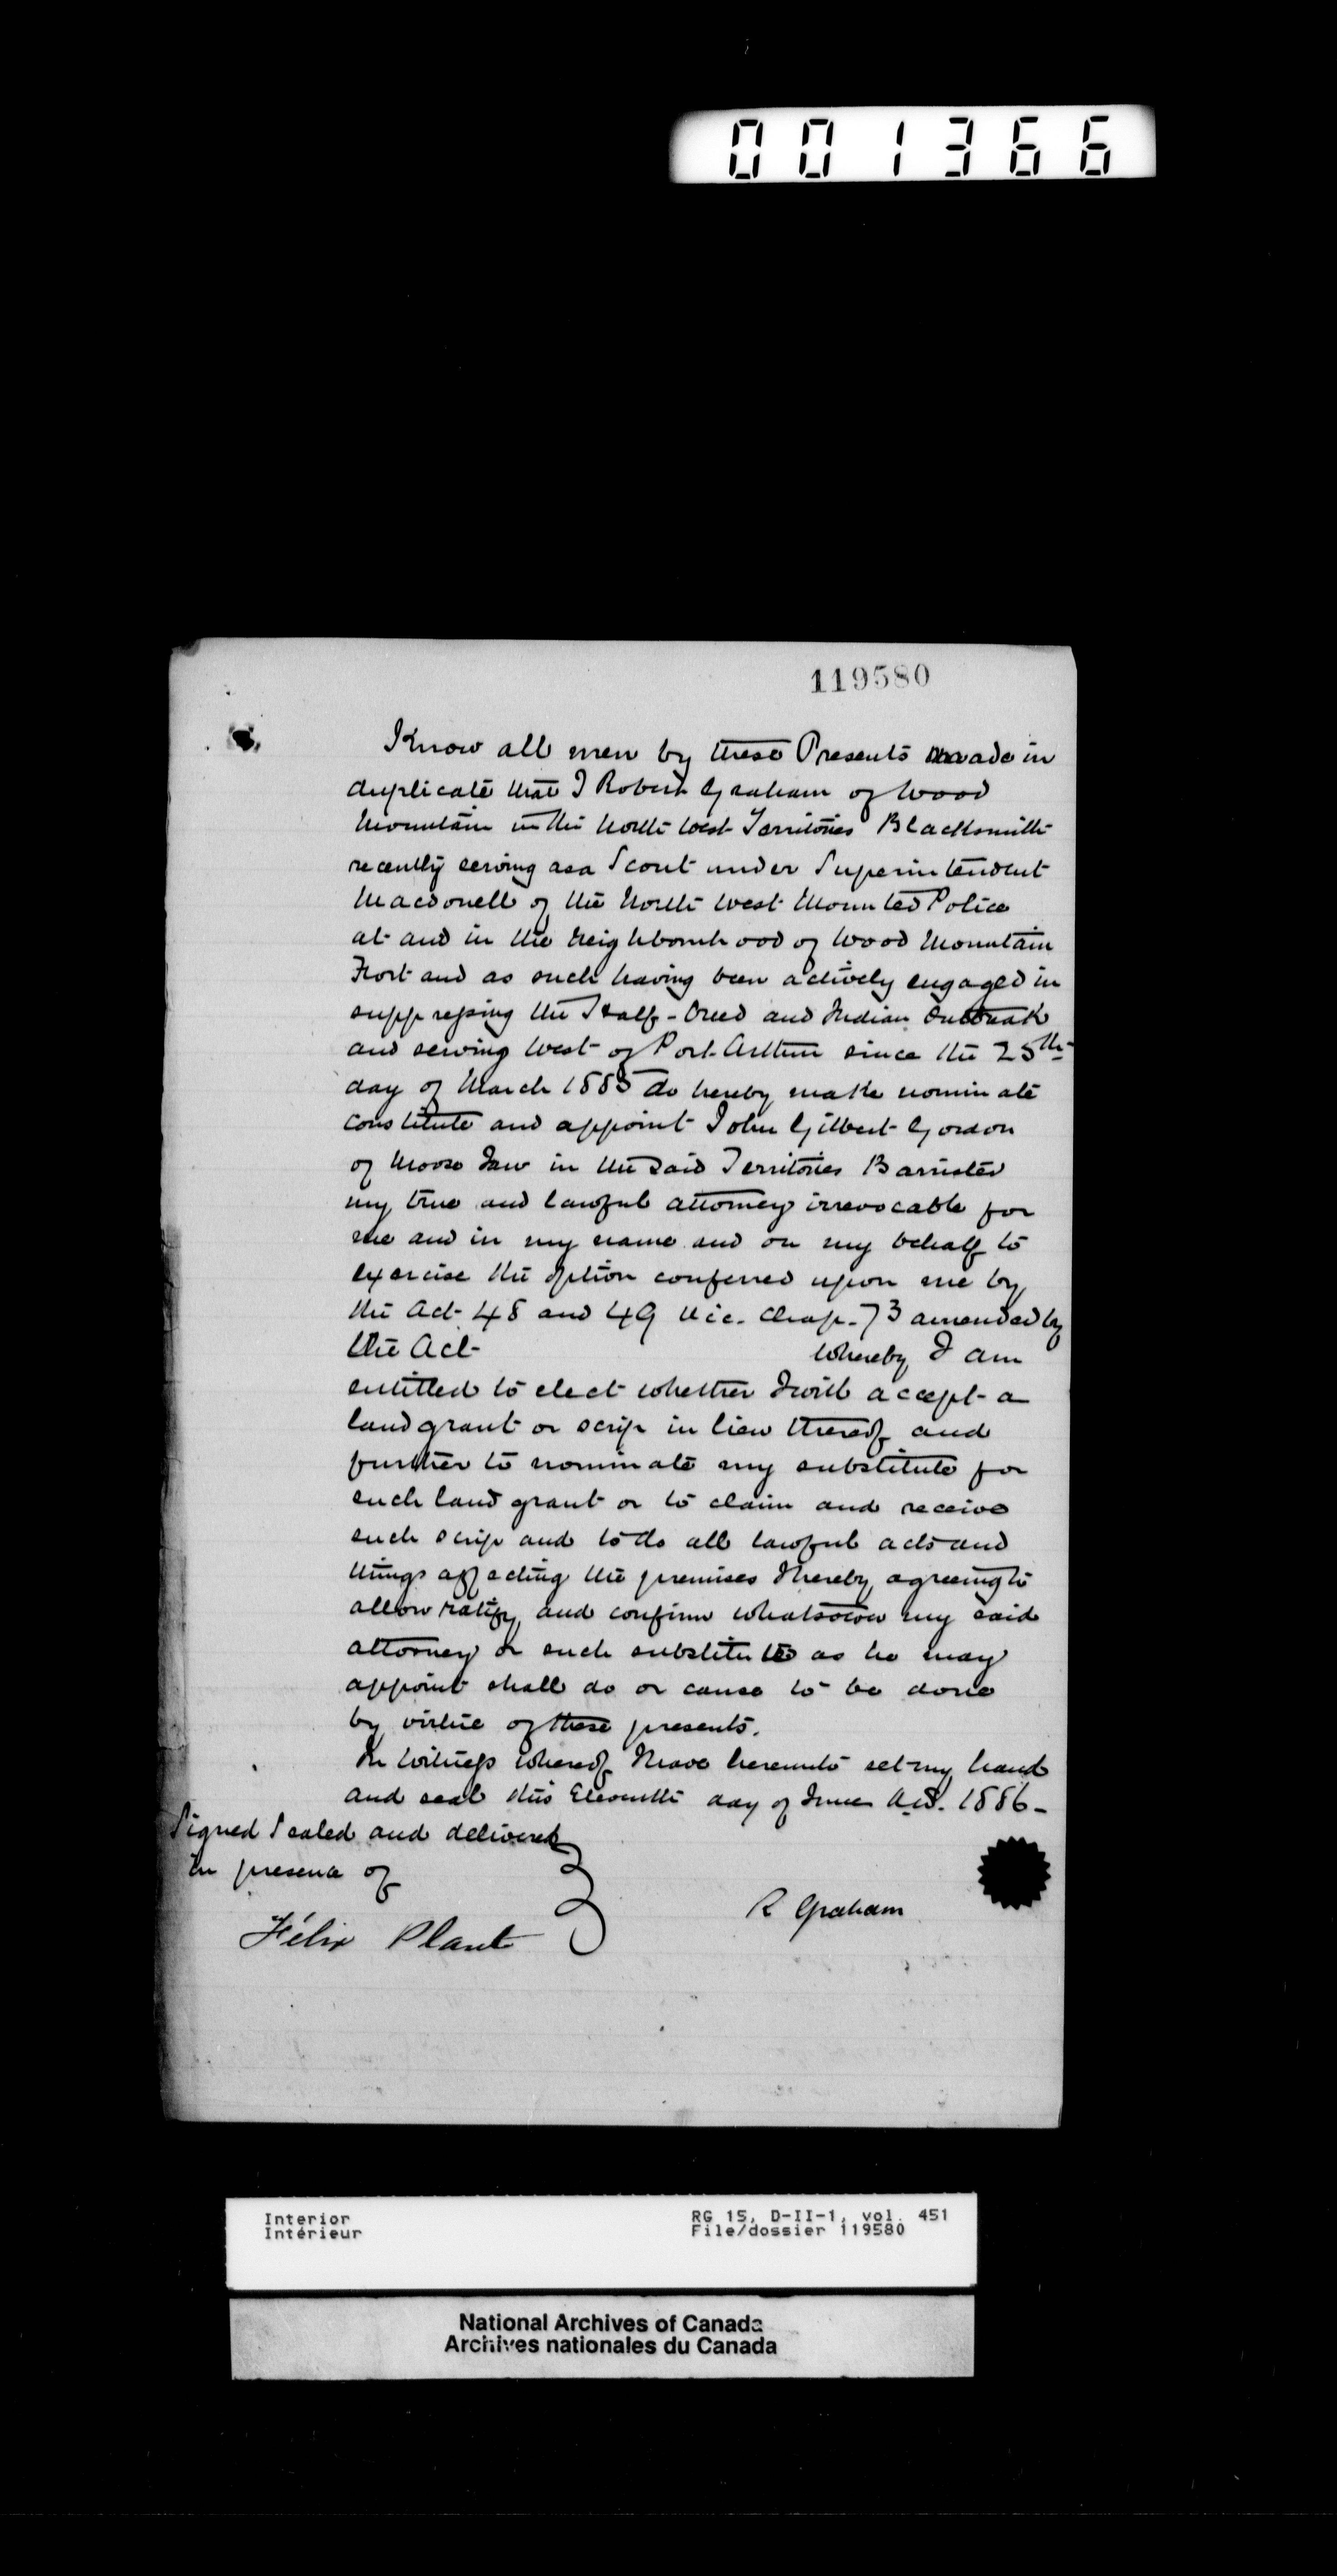 001366
119580
Know all men by these Presents made in
duplicate that I Robert Graham of Wood
Mountain in the North West Territories Blacksmith
recently serving as a Scout under Superintendent
Macdonell of the North West Mounted Police
at and in the neighbourhood of Wood Mountain
Fort and as such having been actively engaged in
suppressing the Half-Breed and Indian Outbreak
and serving West of Port Arthur since the 25th
day of March 1885 do hereby make nominate
constitute and appoint John Gilbert Gordon
of Moose Jaw in the said Territories Barrister
my true and lawful attorney irrevocable for
me and in my name and on my behalf to
exercise the option conferred upon me by
the Act 48 and 49 Vic. Chap. 73 amended by
the Act whereby I am
entitled to elect whether I will accept a
land grant or scrip in lieu thereof and
further to nominate my substitute for
such land grant or to claim and receive
such scrip and to do all lawful acts and
things affecting the premises I hereby agreeing to
allow ratify and confirm whatsoever my said
attorney or such substitute as he may
appoint shall do or cause to be done
by virtue of these presents.
In Witness whereof I have hereunto set my hand
and seal this Eleventh day of June A.D. 1886 -
Signed Sealed and delivered
in presence of
R Graham
Félix Plante
Interior
Intérieur
RG 15, D-II-1, vol. 451
File/dossier 119580
National Archives of Canada
Archives nationales du Canada